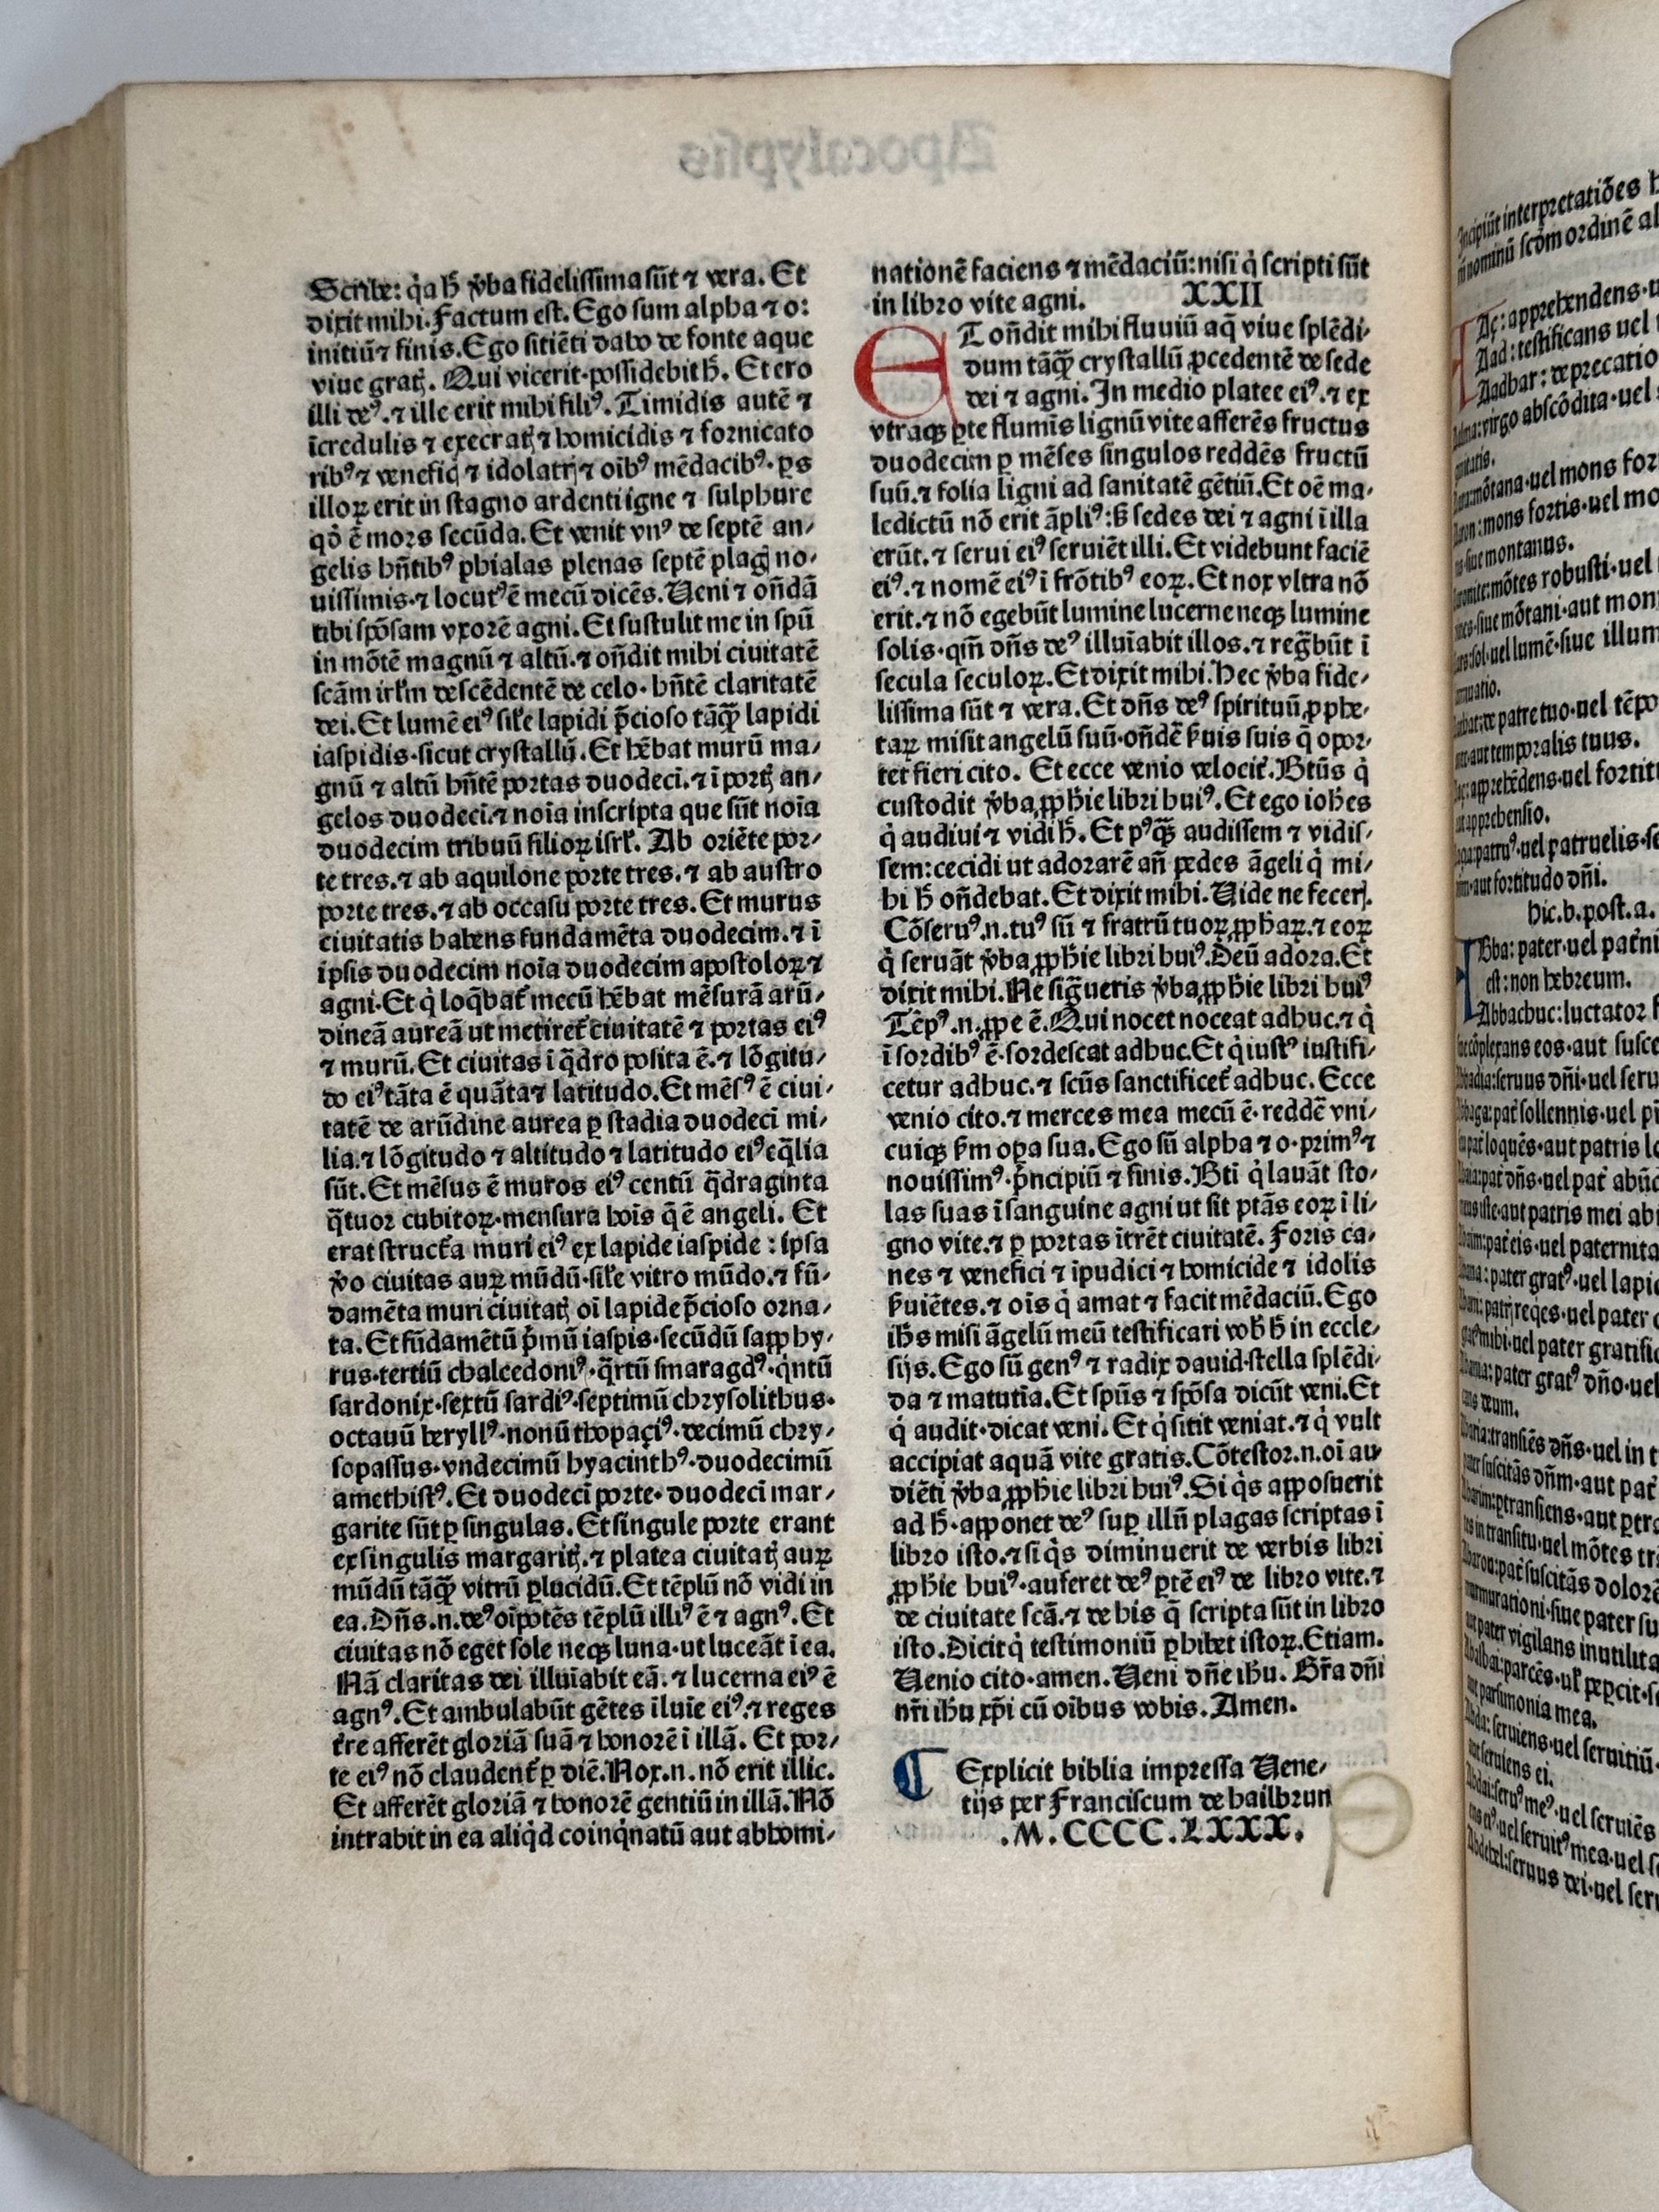 Scribe: q̇a h̄ v̄ba fidelissima sūt ⁊ vera. Et
dixit mihi. Factum est. Ego sum alpha ⁊ o:
initiū ⁊ finis. Ego sitiēti dabo de fonte aque
viue gratꝭ. Qui vicerit·possidebit h̄. Et ero
illi deꝰ.⁊ ille erit mihi filiꝰ. Timidis autē ⁊
īcredulis ⁊ execratꝭ ⁊ homicidis ⁊ fornicato
ribꝰ ⁊ veneficꝭ ⁊ idolatrꝭ ⁊ oībꝰ mēdacibꝰ· ꝑs
illoꝝ erit in stagno ardenti igne ⁊ sulphure
qȯ ē mors secūda. Et venit vnꝰ de septē an/
gelis hn̄tibꝰ phialas plenas septē plagꝭ no/
uissimis·⁊ locutꝰ ē mecū dicēs. Ueni ⁊ on̄dā
tibi spōsam vxorē agni. Et sustulit me in spū
in mōtē magnū ⁊ altū.⁊ on̄dit mihi ciuitatē
scām irlʼm descēdentē de celo· hn̄tē claritatē
dei. Et lumē eiꝰ silʼe lapidi p̄cioso tāꝙ̄ lapidi
iaspidis·sicut crystallū. Et hēbat murū ma/
gnū ⁊ altū hn̄tē portas duodecī.⁊ ī portꝭ an/
gelos duodecī.⁊ noīa inscripta que sūt noīa
duodecim tribuū filioꝝ isrlʼ. Ab oriēte por/
te tres.⁊ ab aquilone porte tres.⁊ ab austro
porte tres.⁊ ab occasu porte tres. Et murus
ciuitatis habens fundamēta duodecim.⁊ ī
ipsis duodecim noīa duodecim apostoloꝝ ⁊
agni. Et q̇ loq̄bat᷑ mecū hēbat mēsurā arū/
dineā aureā ut metiret᷑ ciuitatē ⁊ portas eiꝰ
⁊ murū. Et ciuitas ī q̄dro posita ē.⁊ lōgitu/
do eiꝰ tāta ē quāta ⁊ latitudo. Et mēsꝰ ē ciui/
tatē de arūdine aurea ꝑ stadia duodecī mi/
lia.⁊ lōgitudo ⁊ altitudo ⁊ latitudo eiꝰ eq̄lia
sūt. Et mēsus ē muros eiꝰ centū q̄draginta
q̄tuor cubitoꝝ·mensura hoīs q̄ ē angeli. Et
erat struct᷑a muri eiꝰ ex lapide iaspide : ipsa
v̄o ciuitas auꝝ mūdū·silʼe vitro mūdo.⁊ fū/
damēta muri ciuitatꝭ oī lapide p̄cioso orna/
ta. Et fūdamētū ṗmū iaspis·secūdū sapphy/
rus·tertiū chalcedoniꝰ·q̄rtū smaragdꝰ·q̇ntū
sardonix·sextū sardiꝰ·septimū chrysolithus·
octauū beryllꝰ·nonū thopaciꝰ·decimū chry/
sopassus·vndecimū hyacinthꝰ·duodecimū
amethistꝰ. Et duodecī porte· duodecī mar/
garite sūt ꝑ singulas. Et singule porte erant
ex singulis margaritꝭ.⁊ platea ciuitatꝭ auꝝ
mūdū tāꝙ̄ vitrū ꝑlucidū. Et tēplū nō vidi in
ea. Dn̄s.n.deꝰ oīpotēs tēplū illiꝰ ē ⁊ agnꝰ. Et
ciuitas nō eget sole neqꝫ luna·ut luceāt ī ea.
Nā claritas dei illuīabit eā. ⁊ lucerna eiꝰ ē
agnꝰ. Et ambulabūt gētes ī luīe eiꝰ.⁊ reges
t᷑re afferēt gloriā suā ⁊ honorē ī illā. Et por/
te eiꝰ nō claudent᷑ ꝑ diē. Nox.n.nō erit illic.
Et afferēt gloriā ⁊ honorē gentiū in illā. Nō
intrabit in ea aliq̇d coinq̇natū aut abhomi/
nationē faciens ⁊ mēdaciū: nisi q̇ scripti sūt
in libro vite agni. XXII
ET on̄dit mihi fluuiū aq̄ viue splēdi/
dum tāꝙ̄ crystallū ꝓcedentē de sede
dei ⁊ agni. In medio platee eiꝰ.⁊ ex
vtraqꝫ ꝑte flumīs lignū vite afferēs fructus
duodecim ꝑ mēses singulos reddēs fructū
suū.⁊ folia ligni ad sanitatē gētiū. Et oē ma/
ledictū nō erit āpliꝰ: s̄ sedes dei ⁊ agni ī illa
erūt. ⁊ serui eiꝰ seruiēt illi. Et videbunt faciē
eiꝰ.⁊ nomē eiꝰ ī frōtibꝰ eoꝝ. Et nox vltra nō
erit.⁊ nō egebūt lumine lucerne neqꝫ lumine
solis·qm̄ dn̄s deꝰ illuīabit illos.⁊ regn̄būt ī
secula seculoꝝ. Et dixit mihi. Hec v̄ba fide/
lissima sūt ⁊ vera. Et dn̄s deꝰ spirituū ꝓphe/
taꝝ misit angelū suū·on̄dē s̄uis suis q̄ opor/
tet fieri cito. Et ecce venio velocit᷑. Bt̄us q̇
custodit v̄ba ꝓph̄ie libri huiꝰ. Et ego ioh̄es
q̇ audiui ⁊ vidi h̄. Et pꝰꝙ̄ audissem ⁊ vidis/
sem: cecidi ut adorarē an̄ pedes āgeli q̇ mi/
hi h̄ on̄debat. Et dixit mihi. Uide ne fecerꝭ.
Cōseruꝰ.n.tuꝰ sū ⁊ fratrū tuoꝝ ꝓph̄aꝝ.⁊ eoꝝ
q̇ seruāt v̄ba ꝓph̄ie libri huiꝰ. Deū adora. Et
dixit mihi. Ne sig̅ueris v̄ba ꝓph̄ie libri huiꝰ
Tēpꝰ.n.ꝓpe ē. Qui nocet noceat adhuc.⁊ q̇
ī sordibꝰ ē·sordescat adhuc. Et q̇ iustꝰ iustifi/
cetur adhuc.⁊ scūs sanctificet᷑ adhuc. Ecce
venio cito.⁊ merces mea mecū ē·reddē vni/
cuiqꝫ s̄m opa sua. Ego sū alpha ⁊ o·primꝰ ⁊
nouissimꝰ·ṗncipiū ⁊ finis. Btī q̇ lauāt sto/
las suas ī sanguine agni ut sit ptās eoꝝ ī li/
gno vite.⁊ ꝑ portas ītrēt ciuitatē. Foris ca/
nes ⁊ venefici ⁊ īpudici ⁊ homicide ⁊ idolis
s̄uiētes.⁊ oīs q̇ amat ⁊ facit mēdaciū. Ego
ih̄s misi āgelū meū testificari vob̄ h̄ in eccle/
sijs. Ego sū genꝰ ⁊ radix dauid·stella splēdi/
da ⁊ matutīa. Et spūs ⁊ spōsa dicūt veni. Et
q̇ audit·dicat veni. Et q̇ sitit veniat.⁊ q̇ vult
accipiat aquā vite gratis. Cōtestor.n.oī au/
diēti v̄ba ꝓph̄ie libri huiꝰ. Si q̇s apposuerit
ad h̄·apponet deꝰ suꝑ illū plagas scriptas ī
libro isto.⁊ si q̇s diminuerit de verbis libri
ꝓph̄ie huiꝰ·auferet deꝰ ꝑtē eiꝰ de libro vite.⁊
de ciuitate scā.⁊ de his q̄ scripta sūt in libro
isto. Dicit q̇ testimoniū ꝑhibet istoꝝ. Etiam.
Uenio cito·amen. Ueni dn̄e ih̄u. Gr̄a dn̄i
nr̄i ih̄u xp̄i cū oībus vobis. Amen.
Explicit biblia impressa Uene/
tijs per Franciscum de hailbrun
.M.CCCC.LXXX.
Incipiūt interpretatiōes
nominū scd̄m ordinē al
Aç: apprehendens·u
Aad: testificans uel
Aadbar: deprecatio
virgo abscōdita·uel
mōtana·uel mons for
mons fortis·uel mo
siue montanus.
mōtes robusti·uel
siue mōtani·aut mon
sol·uel lumē·siue illum
de patre tuo·uel tēpo
aut temporalis tuus.
apprehēdens·uel fortit
apprehensio.
patruꝰ·uel patruelis·
aut fortitudo dn̄i.
hic.b.post.a.
ABba: pater·uel
est: non hebreum.
Abbacbuc: luctator
cōplexans eos·aut susce
seruus dn̄i·uel seru